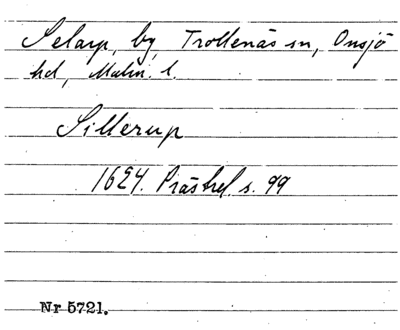 Selarp, by, Trollenäs sn, Onsjö
hd, Malm. l.
Sillerup
1624. Prästrel. s. 99
Nr 5721.